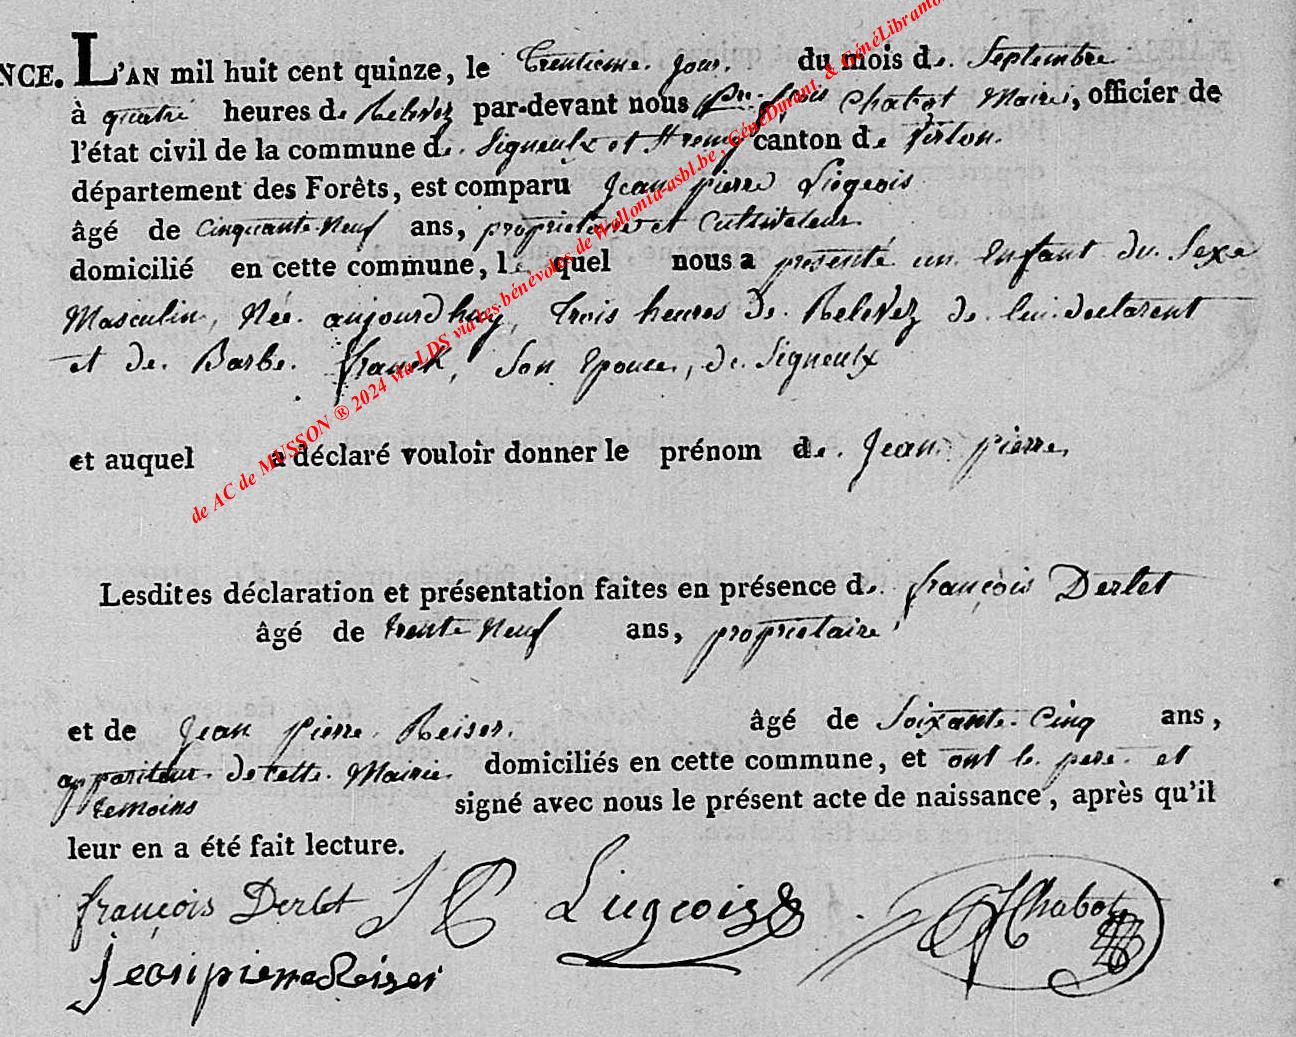 NCE. L'AN mil huit cent quinze, le trentieme jour du mois de Septembre
à quatre heures de Relevez par-devant nous Chabot Maire, officier de
l'état civil de la commune de Signeulx et canton de Virton.
département des Forêts, est comparu Jean pierre Liegeois
âgé de Cinquante Neuf ans, proprietaire et Cultivateur
domicilié en cette commune, le quel nous a presenté un Enfant du Sexe
Masculin, Née aujourdhuy, trois heures de Relevez de lui declarent
et de Barbe franck, Son Epouce, de Signeulx
et auquel a déclaré vouloir donner le prénom de Jean pierre,
Lesdites déclaration et présentation faites en présence de françois Derlet
âgé de trente Neuf ans, proprietaire
et de Jean pierre Reiser. âgé de Soixante Cinq ans,
appariteur de cette Mairie. domiciliés en cette commune, et ont le pere et
temoins signé avec nous le présent acte de naissance, après qu'il
leur en a été fait lecture.
françois Derlet J P Liegeois Chabot
Jean pierre Reiser
de AC de MUSSON ® 2024 via LDS via les bénévoles de Wallonia-asbl.be, GénéDurant, & GénéLibramo